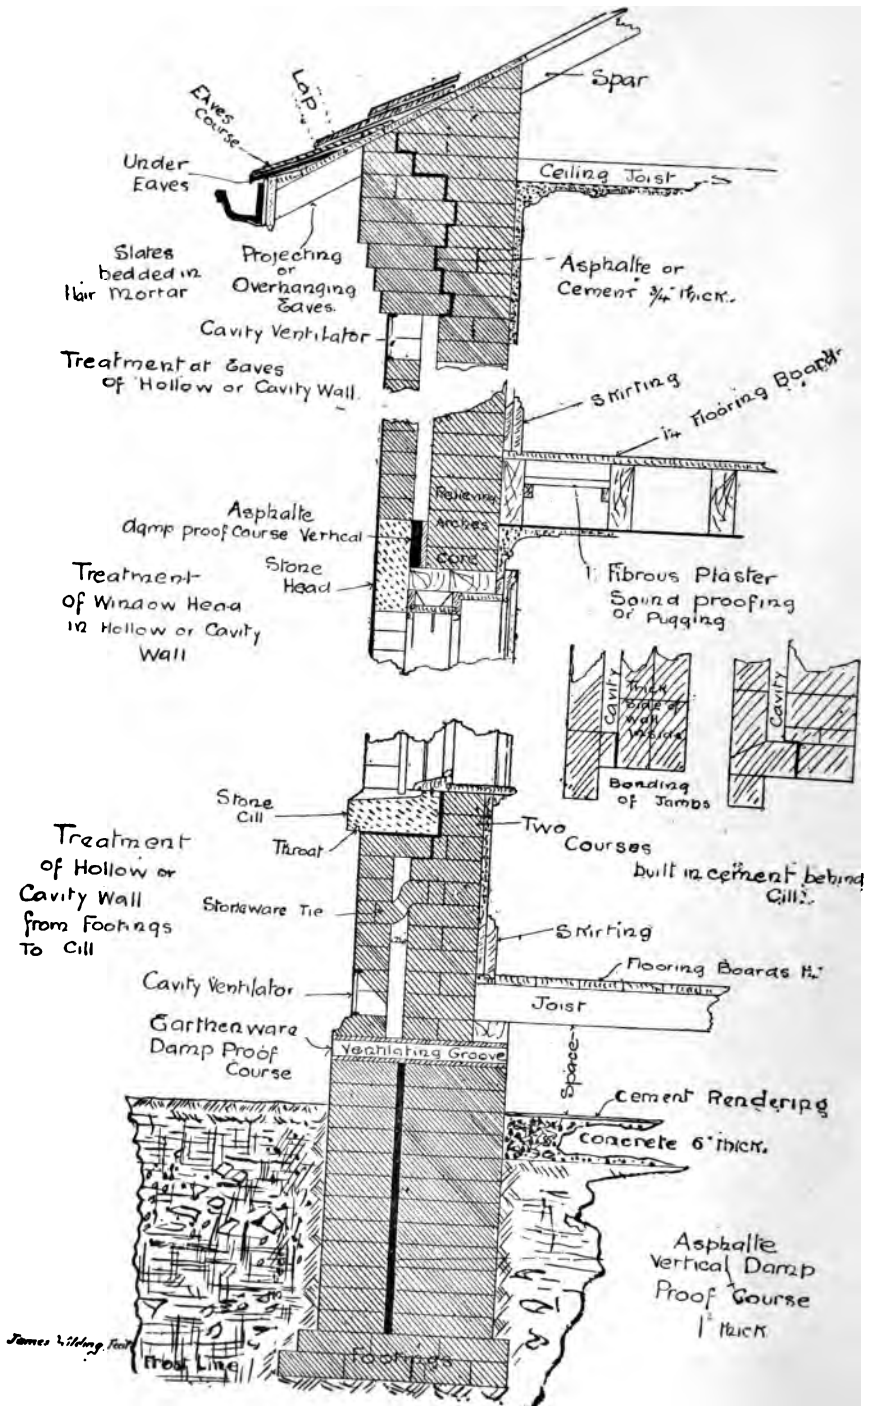 Spar
Lap
Eaves
Course
Under
Eaves
Ceiling Joist
Slates
bedded in
Hair Mortar
Projecting
or
Overhanging
Eaves.
Asphalte or
Cement 3/4" thick.
Cavity Ventilator
Treatment at Eaves
of Hollow or Cavity Wall.
Skirting
1¼ Flooring Boards
Relieving
Arches
Core
Asphalte
damp proof Course Vertical
Stone
Head
Treatment
of Window Head
in Hollow or Cavity
Wall
1" Fibrous Plaster
Sound proofing
or Pugging
Cavity
Thick
Side of
Wall
Inside
Cavity
Bonding
of Jambs
Stone
Cill
Throat
Two
Courses
built in cement behind
Cill.
Treatment
of Hollow or
Cavity Wall
from Footings
To Cill
Stoneware Tie
Skirting
Flooring Boards 1¼"
Cavity Ventilator
Joist
Earthenware
Damp Proof
Course
Ventilating Groove
Space
Cement Rendering
Concrete 6" thick.
Asphalte
Vertical Damp
Proof Course
1" thick
James Wilding. Fecit
Frost Line
Footings